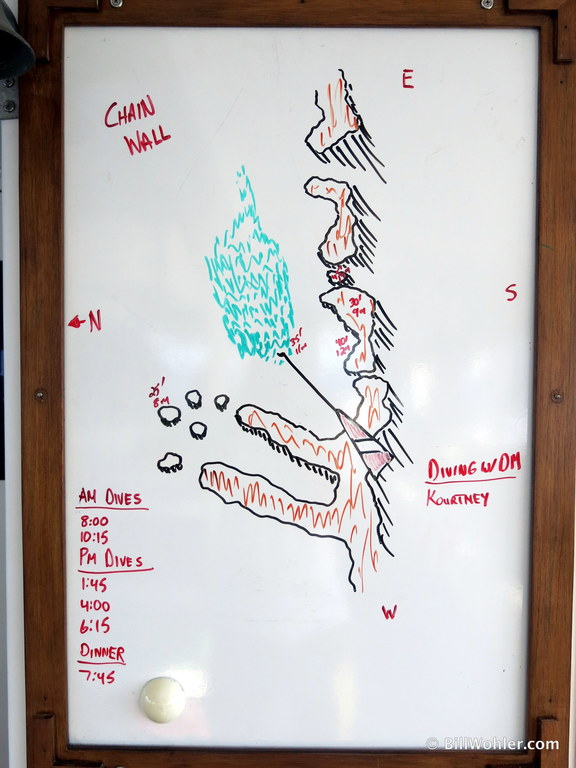 E
CHAIN
WALL
S
N
30'
9m
35'
11m
40'
12m
25'
8m
DIVING W/ DM
KOURTNEY
AM DIVES
8:00
10:15
PM DIVES
1:45
4:00
6:15
DINNER
7:45
W
© BillWohler.com